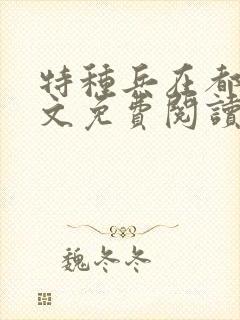 特種兵在都
文免費閱讀
魏冬冬